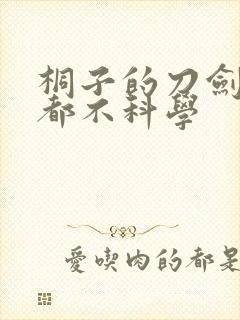 桐子的刀劍
都不科學
愛喫肉的都是